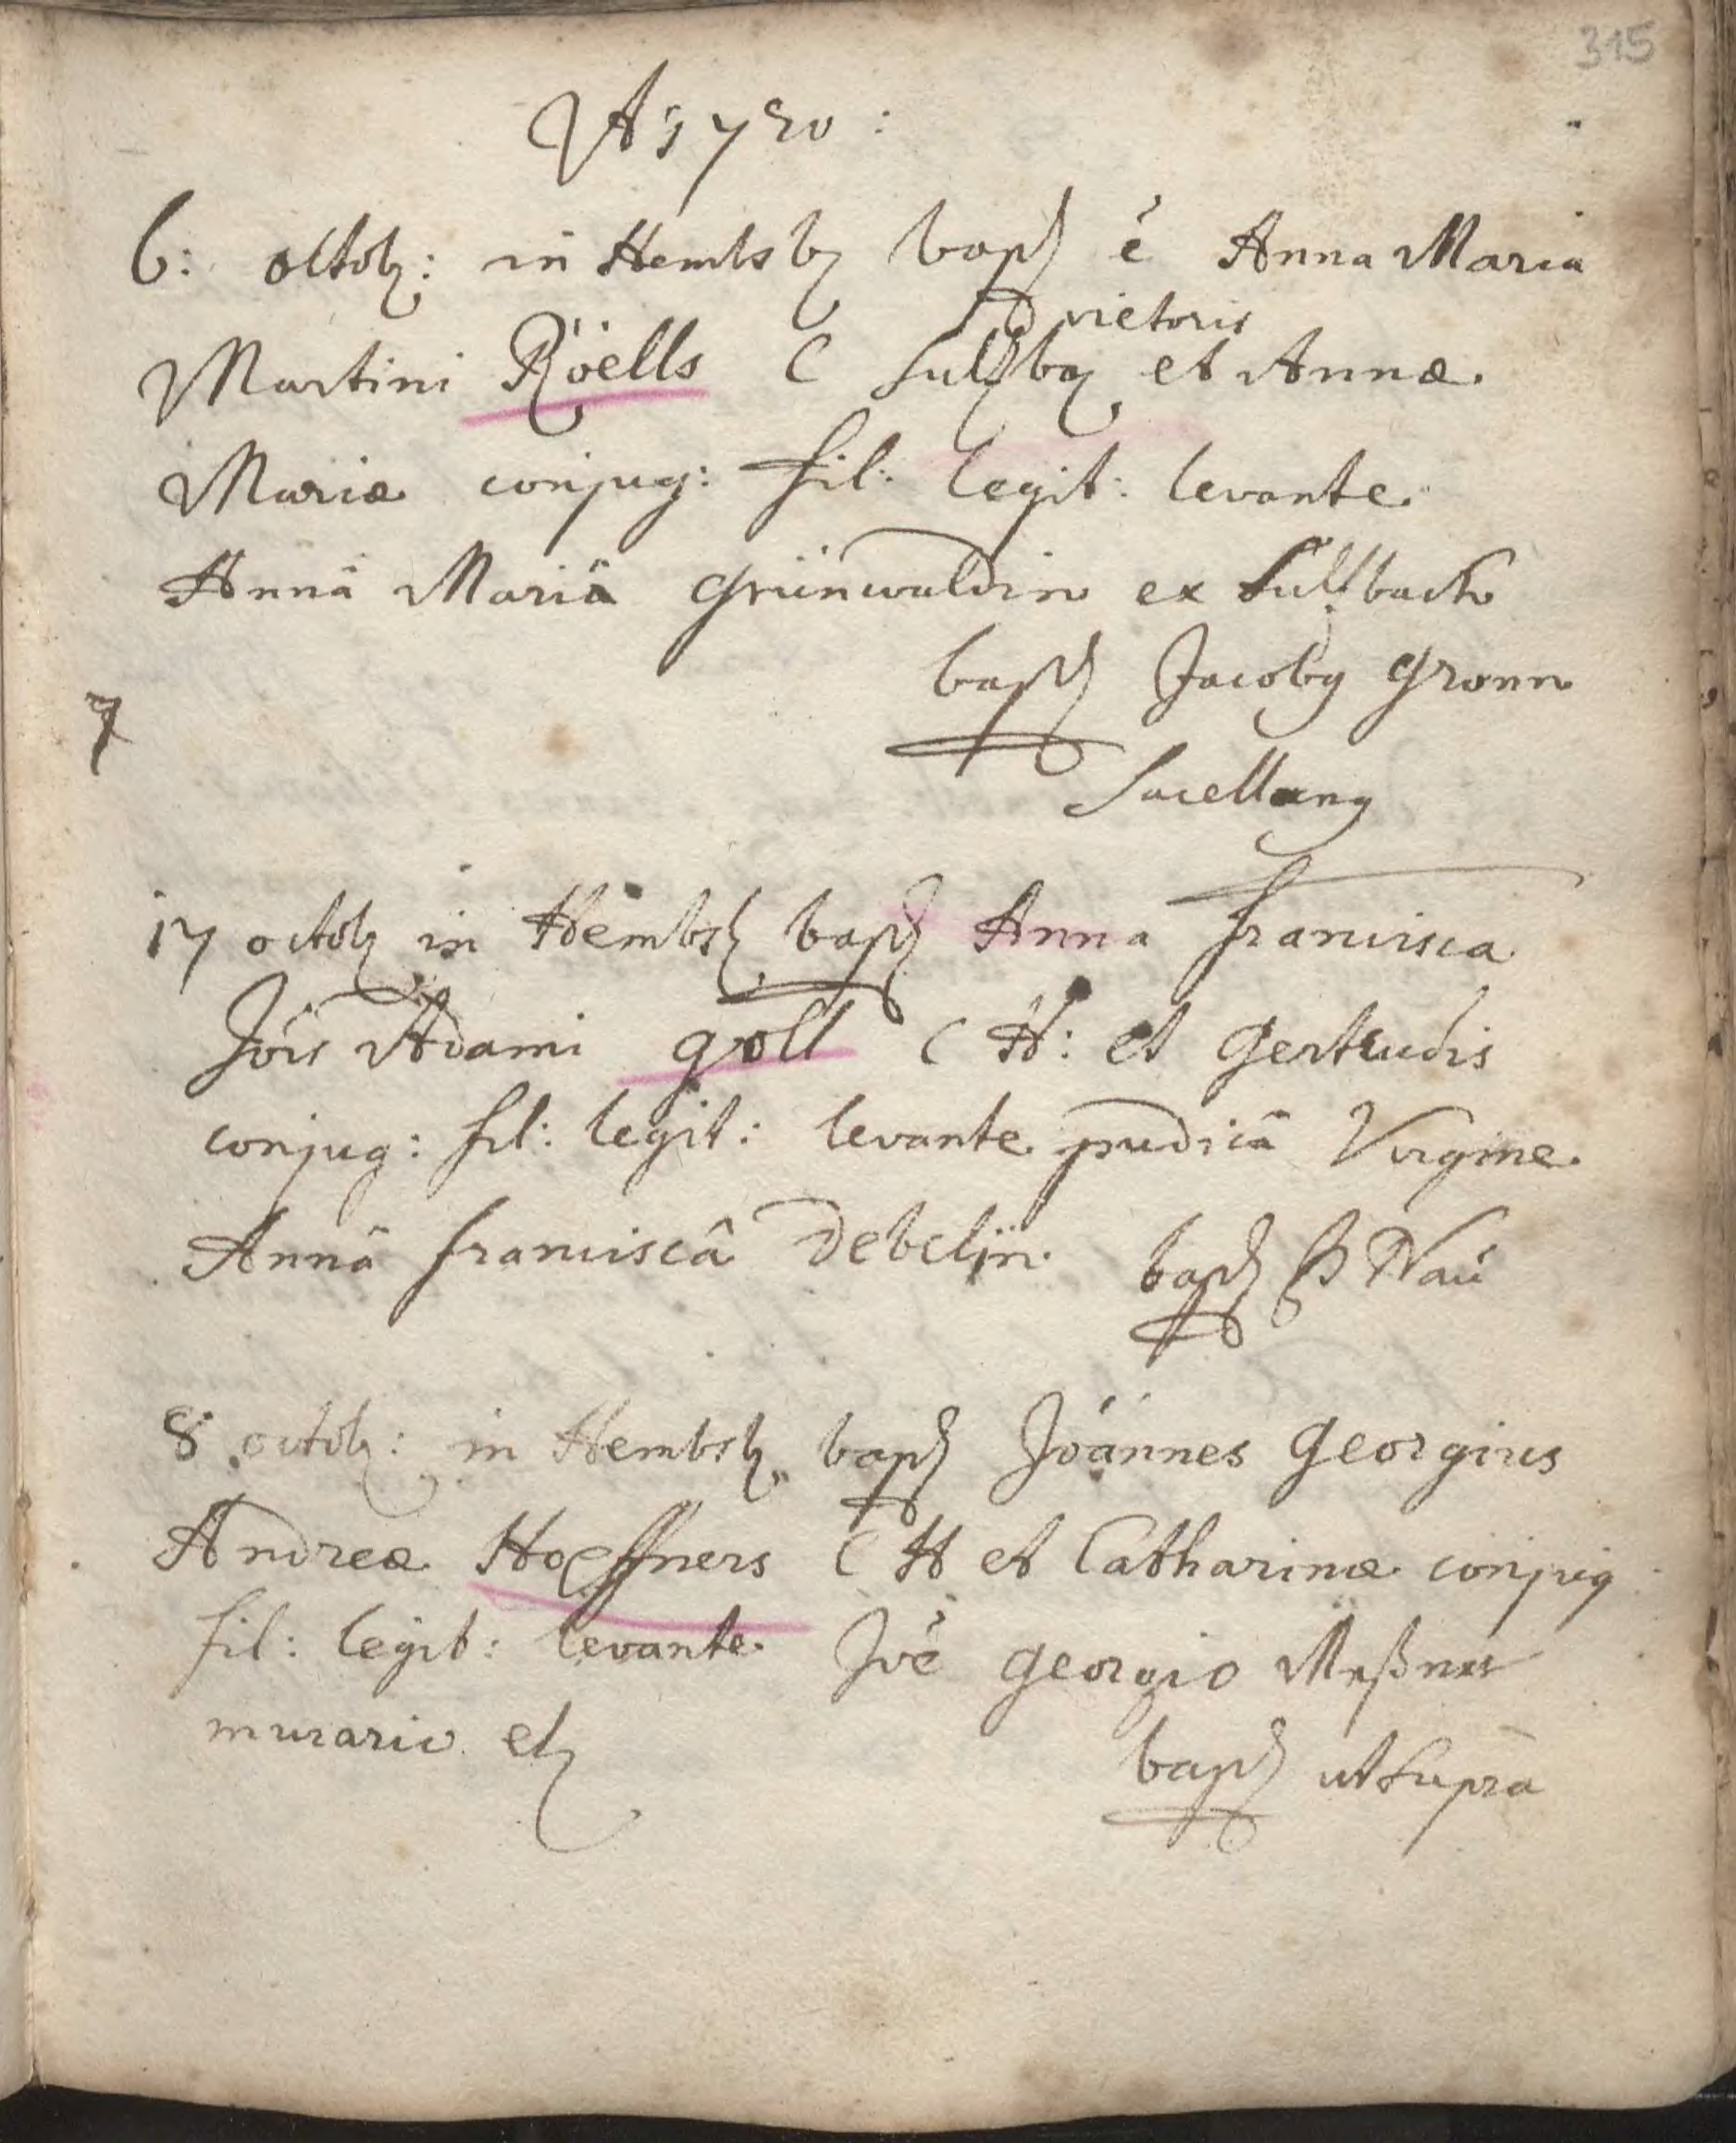 315
A 1720:
6: octob: in Hembsb bapt ẽ Anna Maria
vietoris
Martini Röells C Sultzb et Annæ
Mariæ conjug: fil: legit: levante
Annâ Mariâ Grünwaldin ex Sultzbach
bapt Jacoby Gronn
Sacellany
17 octob in Hembsb bapt Anna Francisca
Jois Adami Goll C H: et Gertrudis
conjug: fil: legit: levante pudicâ Virgine
Annâ Franciscâ Debelin bapt P Nau
8 octob: in Hembsb bapt Joannes Georgius
Andreæ Hoeffners C H et Catharinæ conjug
fil: legit: levante Joe Georgio Meßner
murario etc
bapt ut Supra